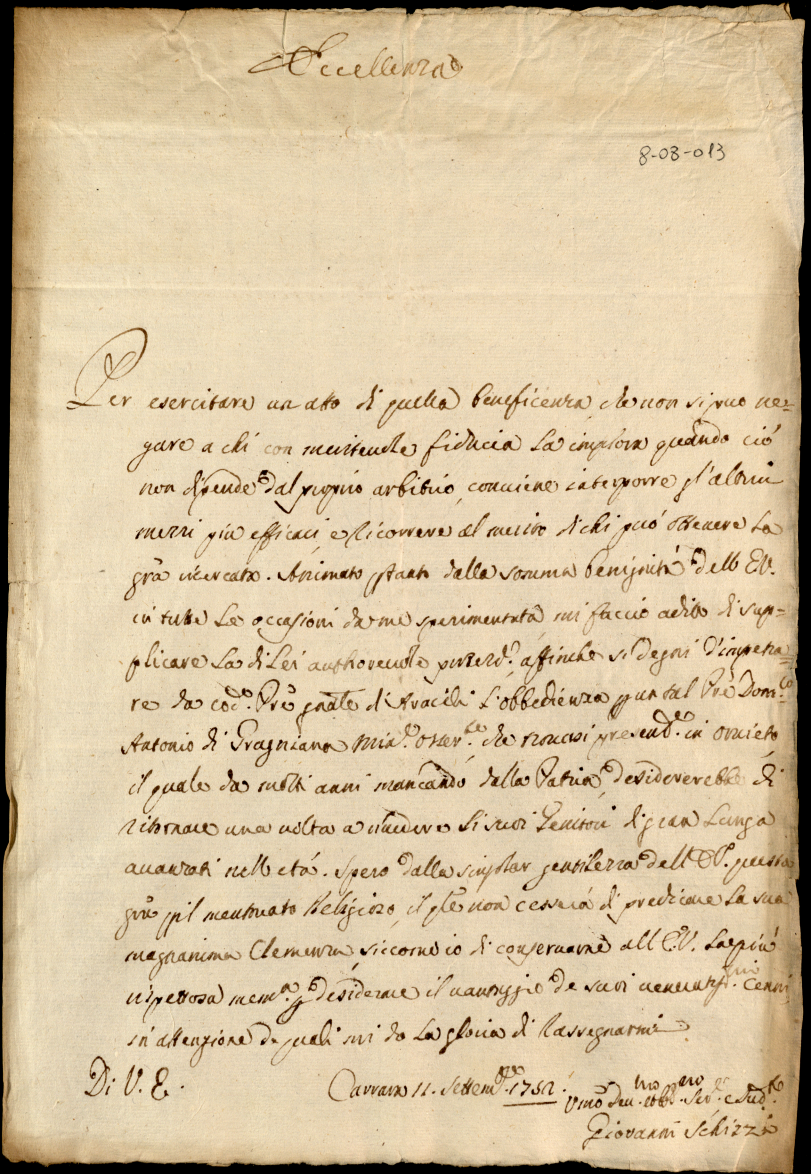 Eccellenza
8-08-013
Per esercitare un atto di quella beneficenza che non si può ne=
gare a chi con meritevole fiducia la implora quando ciò
non dipende dal proprio arbitrio, conviene interporre gl'altrui
mezzi più efficaci e ricorrere al merito di chi può ottenere la
grã ricercata. Animato ptanto dalla somma benignità dell E.V.
in tutte le occasioni da me sperimentata mi faccio adito di sup=
plicare la di Lei authorevole affinche si degni d'impetra=
re da cod.º Prẽ gnãle di Aracili l'obbedienza p un tal Prẽ Dom.co
Antonio di Gragnana Min.e Osser.te che trovasi presend.e in Orvieto
il quale da molti anni mancando dalla Patria desidererebbe di
ritornare una volta a rivedere li suoi Genitori di gran lunga
avanzati nell età. Spero dalla singolar gentilezza dell E.V. questa
grã p il mentovato Religioso, il qle non cesserà di predicare la sua
magnanima Clemenza, siccome io di conservarne all E.V. la più
rispettosa mem.a e desiderare il vantaggio de suoi veneratis.mi Cenni
in attenzione de quali mi do la gloria di rassegnarmi
Di V. E.
Carrara 11. Settem.re 1752.
Vmo Dev.mo obb.mo Ser.e e Sud.to
Giovanni Schizzi